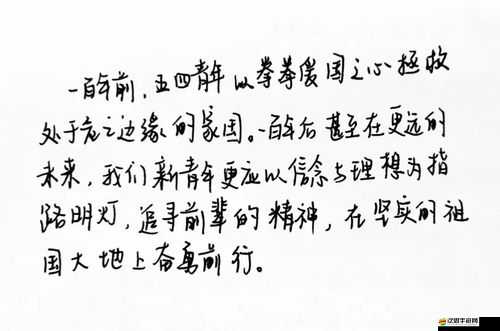 一百年前,五四青年以拳拳爱国之心拯救
处于危亡边缘的家国。一百年后甚至在更远的
未来,我们新青年更应以信念与理想为指
路明灯,追寻前辈的精神,在坚实的祖
国大地上奋勇前行。